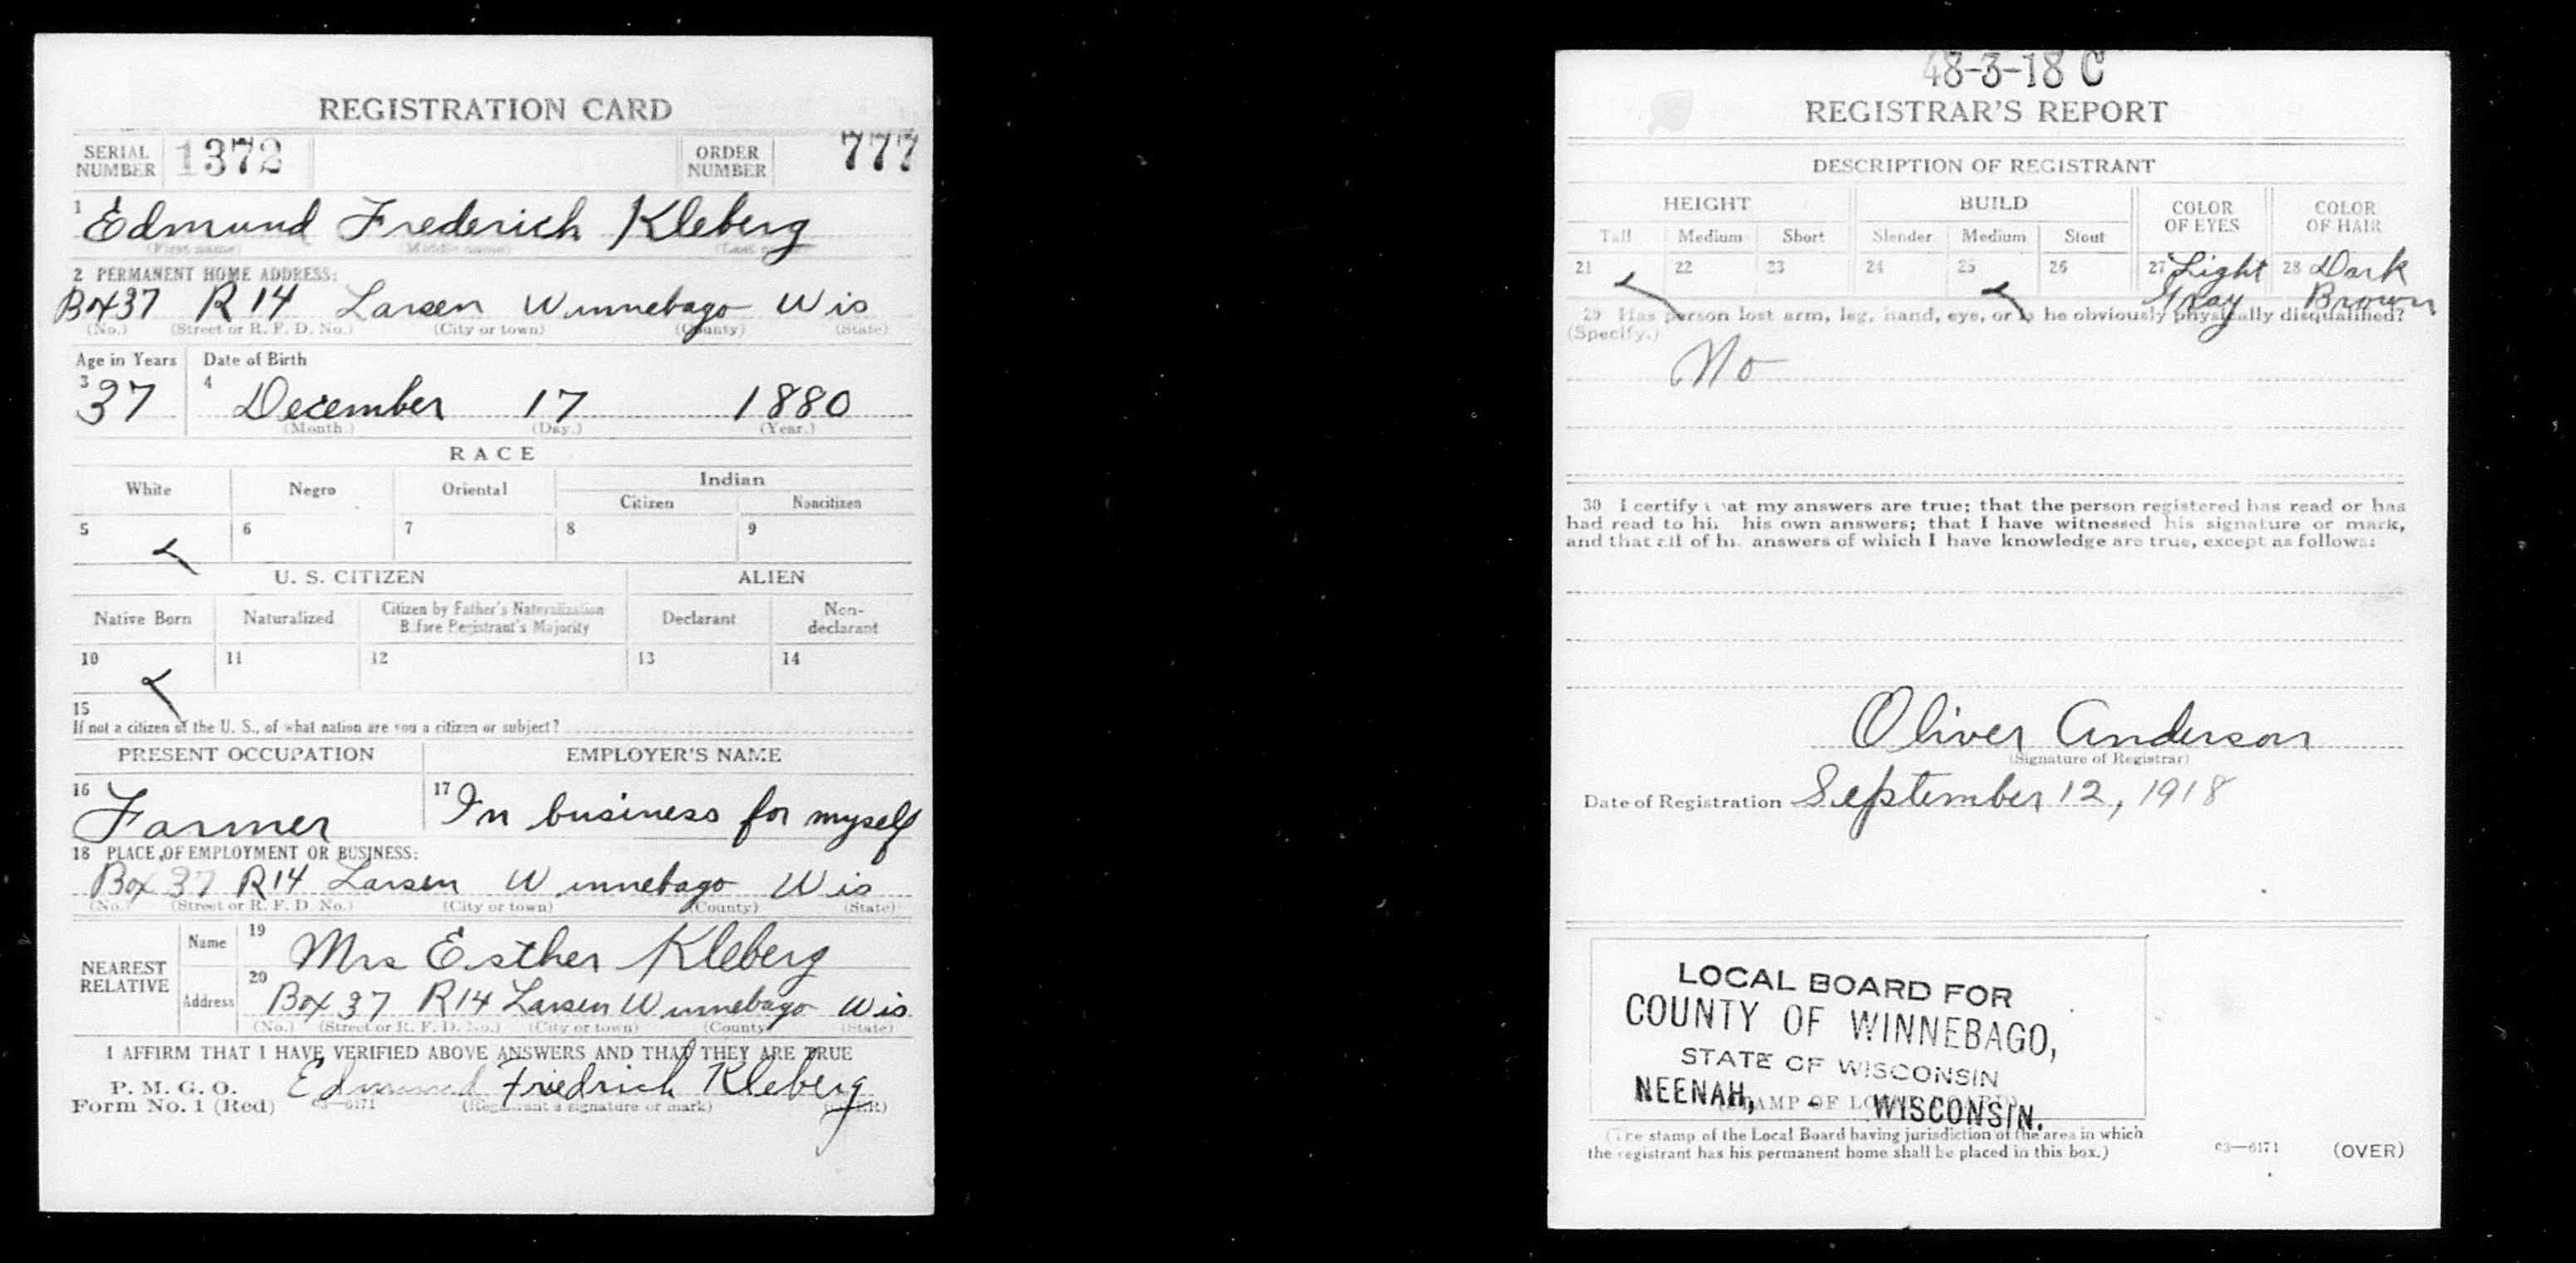 REGISTRATION CARD
SERIAL NUMBER 1372 ORDER NUMBER 777
1 Edmund Frederich Kleberg
(First name) (Middle name) (Last name)
2 PERMANENT HOME ADDRESS:
Box 37 R 14 Larsen Winnebago Wis
(No.) (Street or R. F. D. No.) (City or town) (County) (State)
Age in Years Date of Birth
3 37 4 December 17 1880
(Month.) (Day.) (Year.)
RACE
White Negro Oriental Indian
Citizen Noncitizen
5 6 7 8 9
U. S. CITIZEN ALIEN
Native Born Naturalized Citizen by Father's Naturalization Before Registrant's Majority Declarant Non-declarant
10 11 12 13 14
15
If not a citizen of the U. S., of what nation are you a citizen or subject?
PRESENT OCCUPATION EMPLOYER'S NAME
16 Farmer 17 In business for myself
18 PLACE OF EMPLOYMENT OR BUSINESS:
Box 37 R14 Larsen Winnebago Wis
(No.) (Street or R. F. D. No.) (City or town) (County) (State)
NEAREST RELATIVE Name 19 Mrs Esther Kleberg
Address 20 Box 37 R14 Larsen Winnebago Wis
(No.) (Street or R. F. D. No.) (City or town) (County) (State)
I AFFIRM THAT I HAVE VERIFIED ABOVE ANSWERS AND THAT THEY ARE TRUE
P. M. G. O.
Form No. 1 (Red) 03—6171 Edmund Friedrich Kleberg
(Registrant's signature or mark) (OVER)
48-3-18 C
REGISTRAR'S REPORT
DESCRIPTION OF REGISTRANT
HEIGHT BUILD COLOR OF EYES COLOR OF HAIR
Tall Medium Short Slender Medium Stout
21 22 23 24 25 26 27 Light Gray 28 Dark Brown
29 Has person lost arm, leg, hand, eye, or is he obviously physically disqualified?
(Specify.)
No
30 I certify that my answers are true; that the person registered has read or has
had read to him his own answers; that I have witnessed his signature or mark,
and that all of his answers of which I have knowledge are true, except as follows:
Oliver Anderson
(Signature of Registrar)
Date of Registration September 12, 1918
LOCAL BOARD FOR
COUNTY OF WINNEBAGO,
STATE OF WISCONSIN
NEENAH, - WISCONSIN.
(STAMP OF LOCAL BOARD)
(The stamp of the Local Board having jurisdiction of the area in which
the registrant has his permanent home shall be placed in this box.)
03—6171 (OVER)